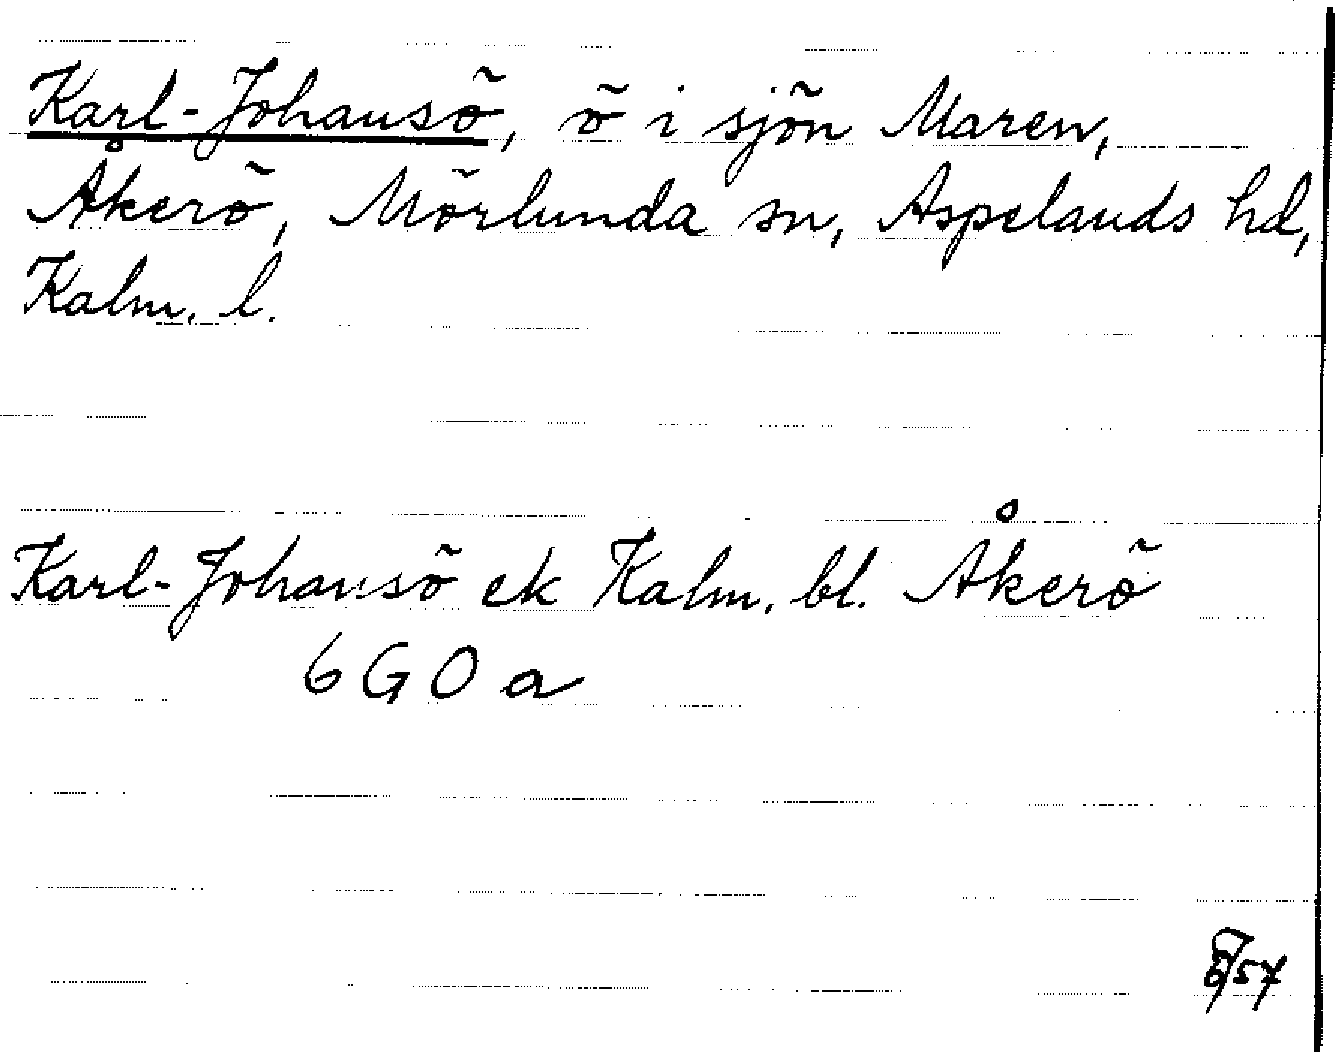 Karl-Johansö, ö i sjön Maren,
Åkerö, Mörlunda sn, Aspelands hd,
Kalm. l.
Karl-Johansö ek Kalm. bl. Åkerö
6 G 0 a